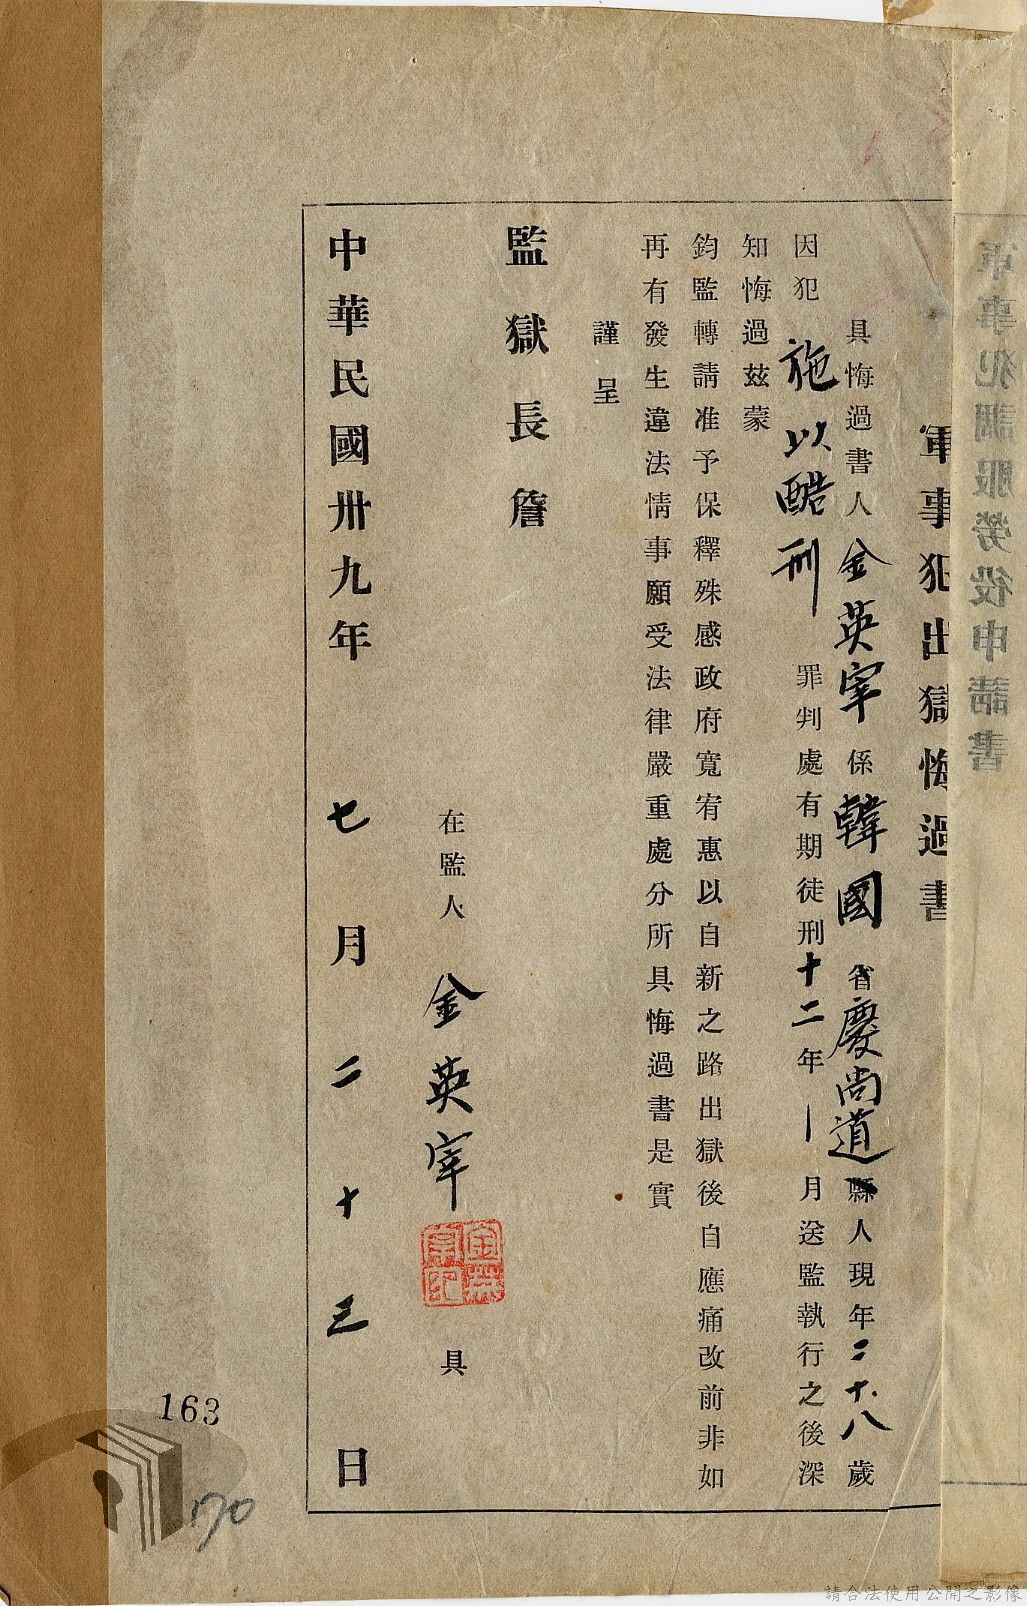 軍事犯調服勞役申請書
軍事犯出獄悔過書
具悔過書人金英宰係韓國省慶尚道縣人現年二十八歲
因犯施以酷刑罪判處有期徒刑十二年一月送監執行之後深
知悔過茲蒙
鈞監轉請准予保釋殊感政府寬宥惠以自新之路出獄後自應痛改前非如
再有發生違法情事願受法律嚴重處分所具悔過書是實
謹呈
監獄長詹
在監人金英宰具
中華民國卅九年七月二十三日
163
170
請合法使用公開之影像